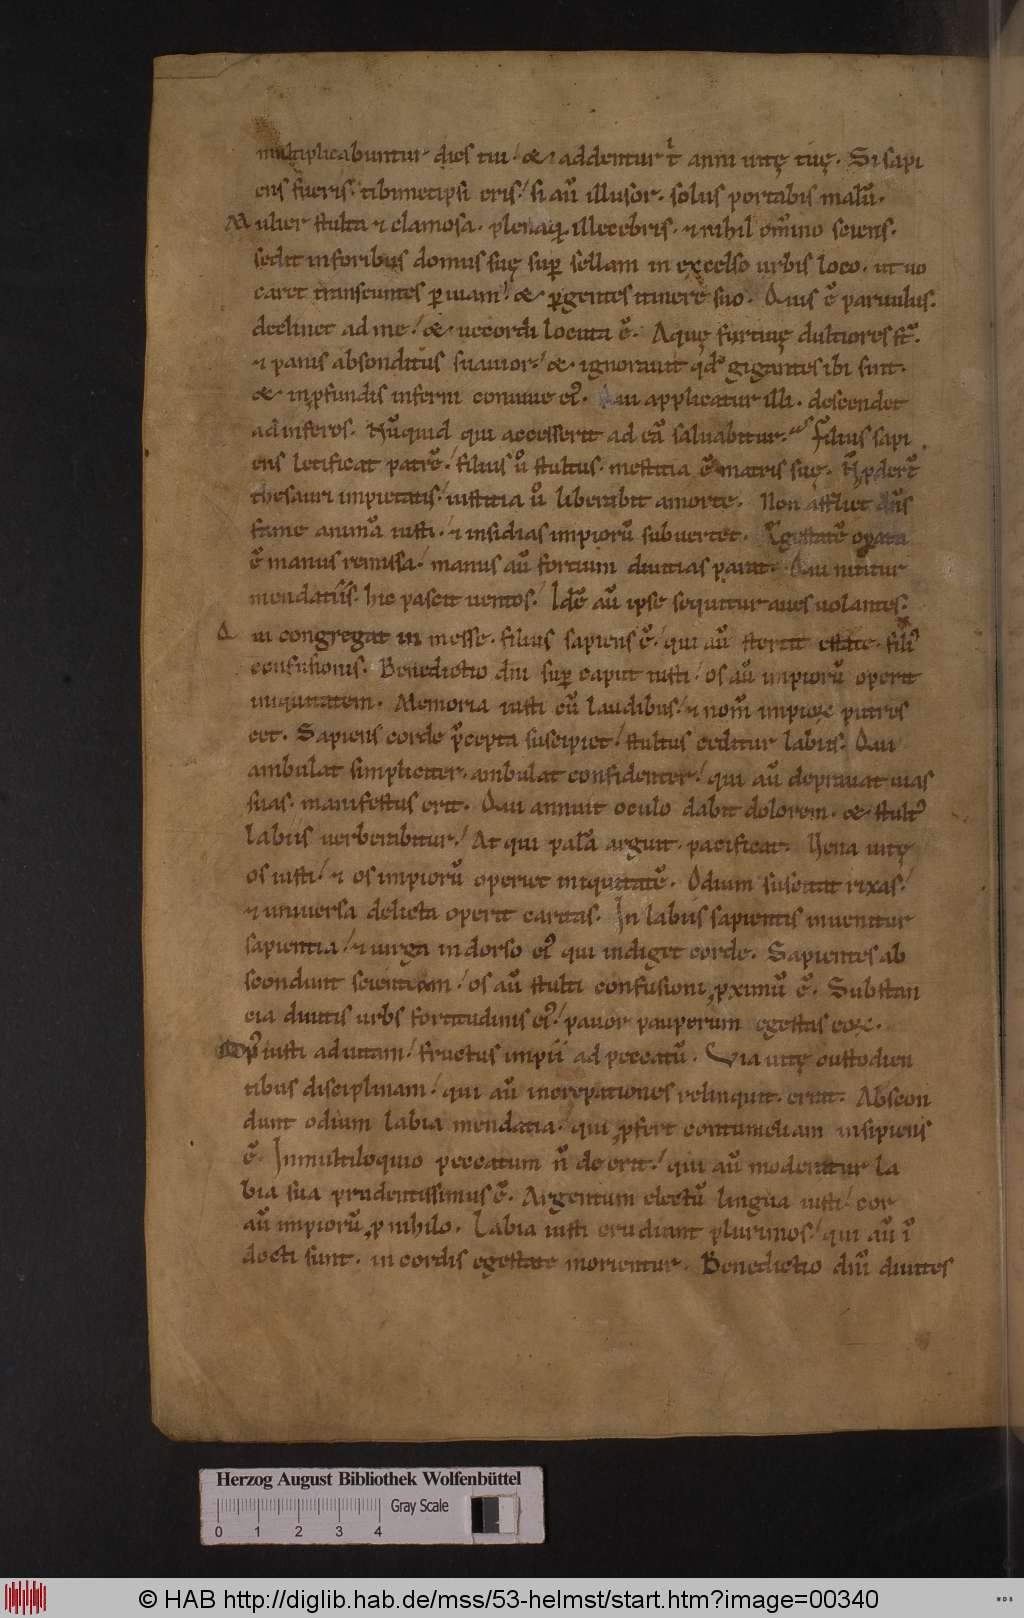 multiplicabuntur dies tui / & addentur t̄ anni uitę tuę. Si sapi
ens fueris. tibimetipsi eris / si aū illusor. solus portabis malū.
Mulier stulta & clamosa. plenaq; illecebris. & nihil om̄ino sciens.
sedit inforibus domus suę sup̄ sellam in excelso urbis loco. ut uo
caret transeuntes p̄ uiam / & p̄gentes itinere suo. Quis ē paruulus.
declinet ad me / & uecordi locuta ē. Aquę furtiuę dulciores st̄.
& panis absconditus suauior / & ignorauit qd̄ gigantes ibi sint.
& in ꝓfundis inferni conuiue ei᾽. Qui applicatur illi. descendet
ad inferos. Nūquid qui accesserit ad eā saluabitur. Filius sapi
ens letificat patrē / filius ū stultus. mestitia ē matris suę. N̄ ꝓdert̄
thesauri impietatis / iustitia ū liberabit amorte. Non affliet dn̄s
fame animā iusti. & insidias impiorū subuertet. Egestatē operata
ē manus remissa / manus aū fortium diuitias parat. Qui nititur
mendatiis. hic pascit uentos / Idē aū ipse sequitur aues uolantes.
Qui congregat in messe. filius sapiens ē / qui aū stertit estate. fili᾽
confusionis. Benedictio dn̄i sup̄ caput iusti / os aū impiorū operit
iniquitatem. Memoria iusti cū laudibus / & nom̄ impioꝝ putres
cet. Sapiens corde p̄cepta suscipiet / stultus ceditur labiis. Qui
ambulat simpliciter. ambulat confidenter / qui aū deprauat uias
suas. manifestus erit. Qui annuit oculo dabit dolorem. & stult᾽
labiis uerberabitur / At qui palā arguit. pacificat. Uena uitę
os iusti / & os impiorū operiet iniquitatē. Odium suscitat rixas /
& uniuersa delicta operit caritas. In labiis sapientis inuenitur
sapientia / & uirga in dorso ei᾽ qui indiget corde. Sapientes ab
scondunt scientiam / os aū stulti confusioni ꝓximū ē. Substan
cia diuitis urbs fortitudinis ei᾽ / pauor pauperum egestas eoꝝ.
Op᾽ iusti ad uitam / fructus impii ad peccatū. Via uitę custodien
tibus disciplinam / qui aū increpationes relinquit. errat. Abscon
dunt odium labia mendatia / qui ꝓfert contumeliam insipiens
ē. In multiloquio peccatum n̄ deerit / qui aū moderatur la
bia sua prudentissimus ē. Argentum electū lingua iusti / cor
aū impiorū ꝓ nihilo. Labia iusti erudiunt plurimos / qui aū ī
docti sunt. in cordis egestate morientur. Benedictio dn̄i diuites
Herzog August Bibliothek Wolfenbüttel
Gray Scale
0 1 2 3 4
© HAB http://diglib.hab.de/mss/53-helmst/start.htm?image=00340